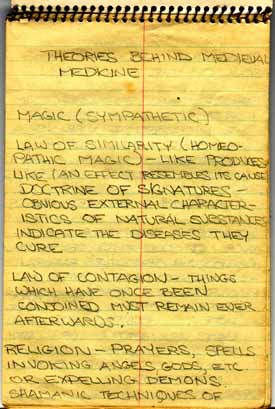 THEORIES BEHIND MEDIEVAL
MEDKINE
MAGIC (SYMPATHETIC)
LAW OF SIMILARITY (HOMEO-
PATHIC MAGIC) - LIKE PRODUCES
LIKE (AN EFFECT RESEMBLES ITS CAUSE
DOCTRINE OF SIGNATURES -
OBVIOUS EXTERNAL CHARACTER-
ISTICS OF NATURAL SUBSTANCES
INDICATE THE DISEASES THEY
CURE
LAW OF CONTAGION - THINGS
WHICH HAVE ONCE BEEN
CONJOINED MUST REMAIN EVER
AFTERWARDS.
RELIGION - PRAYERS, SPELLS
INVOKING ANGELS, GODS, ETC.
OR EXPELLING DEMONS.
SHAMANIC TECHNIQUES OF